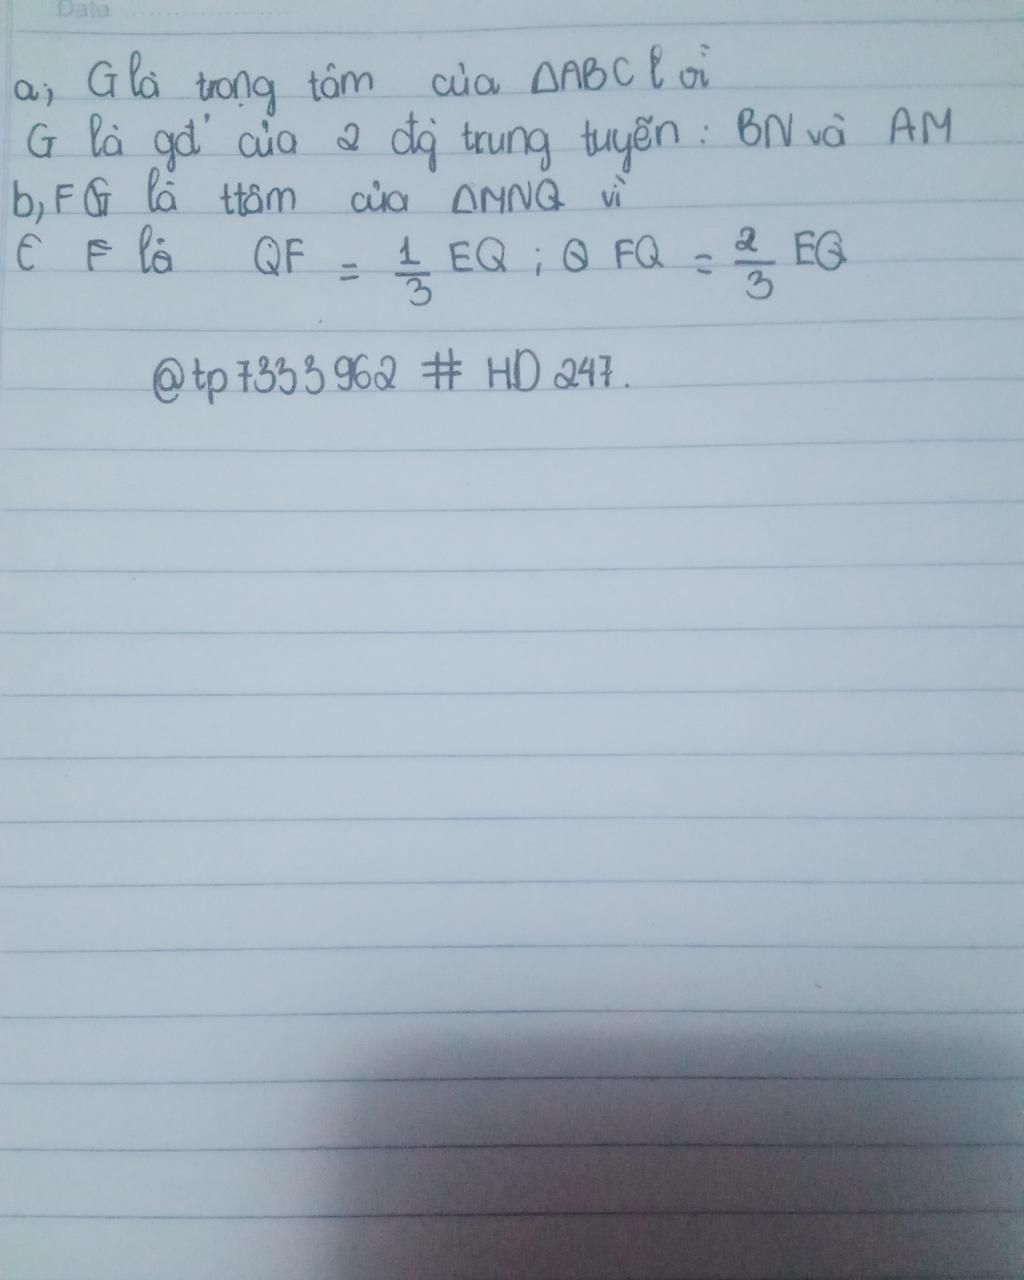 Date
a, G là trọng tâm của ΔABC
G là gđ' của 2 đg trung tuyến: BN và AM
b, F G là ttâm của ΔMNQ vì
E F là QF = 1/3 EQ ; Q FQ = 2/3 EQ
@tp7333962 # HD 247.